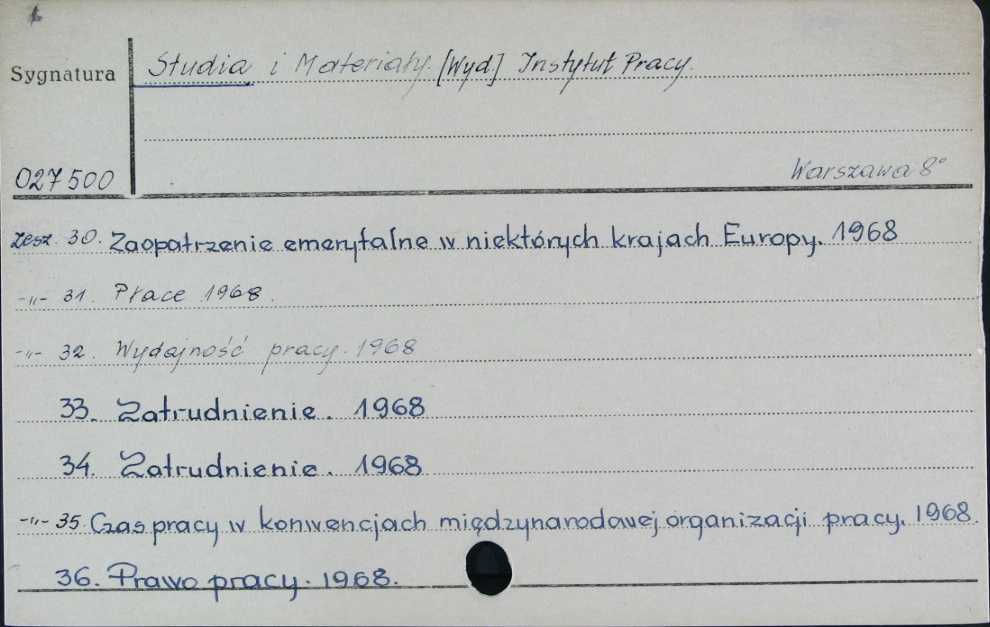 Sygnatura
Studia i Materiały. [Wyd] Instytut Pracy.
027500
Warszawa 8°
Zesz. 30. Zaopatrzenie emerytalne w niektórych krajach Europy. 1968
-"- 31. Płace 1968.
-"- 32. Wydajność pracy. 1968
33. Zatrudnienie. 1968
34. Zatrudnienie. 1968
-"- 35. Czas pracy w konwencjach międzynarodowej organizacji pracy. 1968.
36. Prawo pracy. 1968.